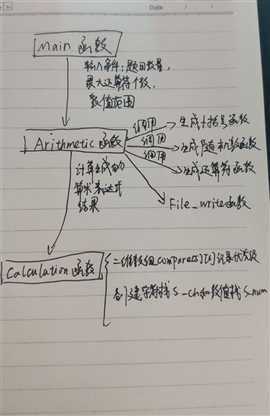 Main 函数
输入条件：题目数量，
最大运算符个数，
数值范围
Arithmetic 函数
调用 生成小括号函数
调用 生成随机数函数
调用 生成运算符函数
File_write函数
计算生成的
算术表达式
结果
Calculation 函数
二维数组compare[7][7]记录优先级
创建字符栈s_char和数值栈s_num